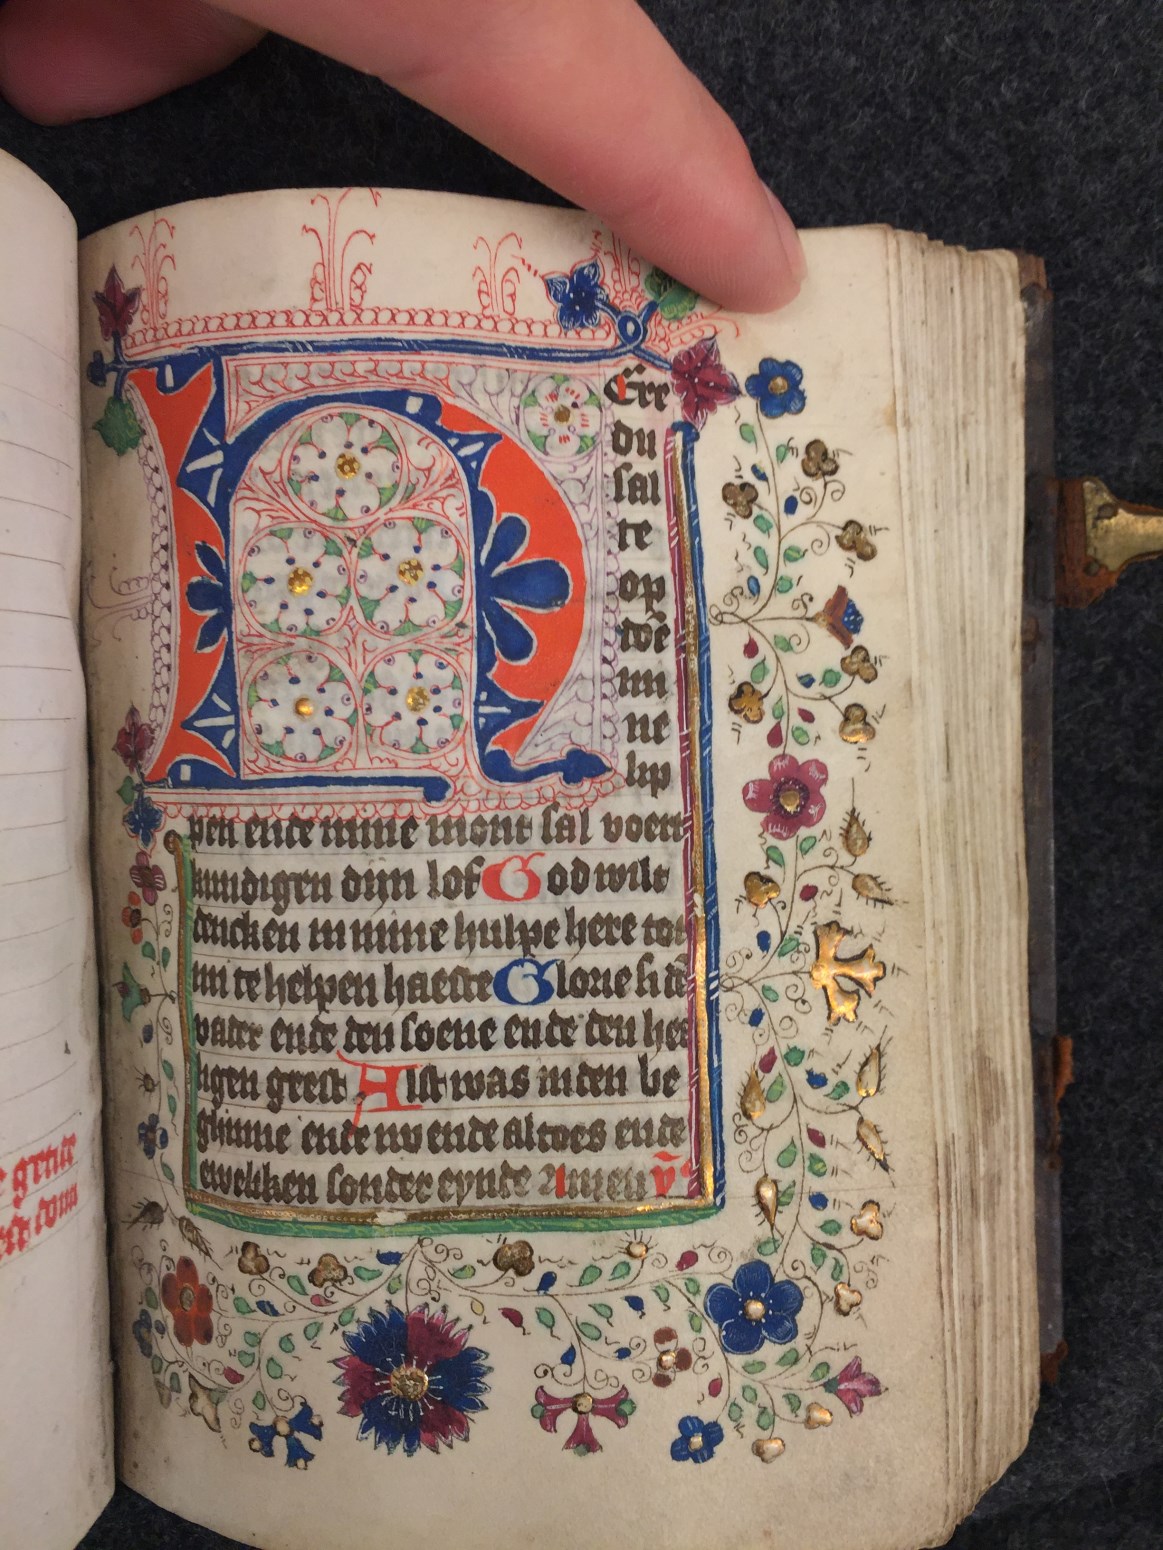 HEre
du
sal
te
op
doē
mi
ne
lip
pen ende mine mont sal voert
kundigen dijn lof God wilt
dencken in mine hulpe here tot
mi te helpen haeste Glorie si dē
vader ende den soene ende den hei
ligen geest Alst was inden be
ghinne ende nu ende altoes ende
eweliken sonder eynde Amen v̄